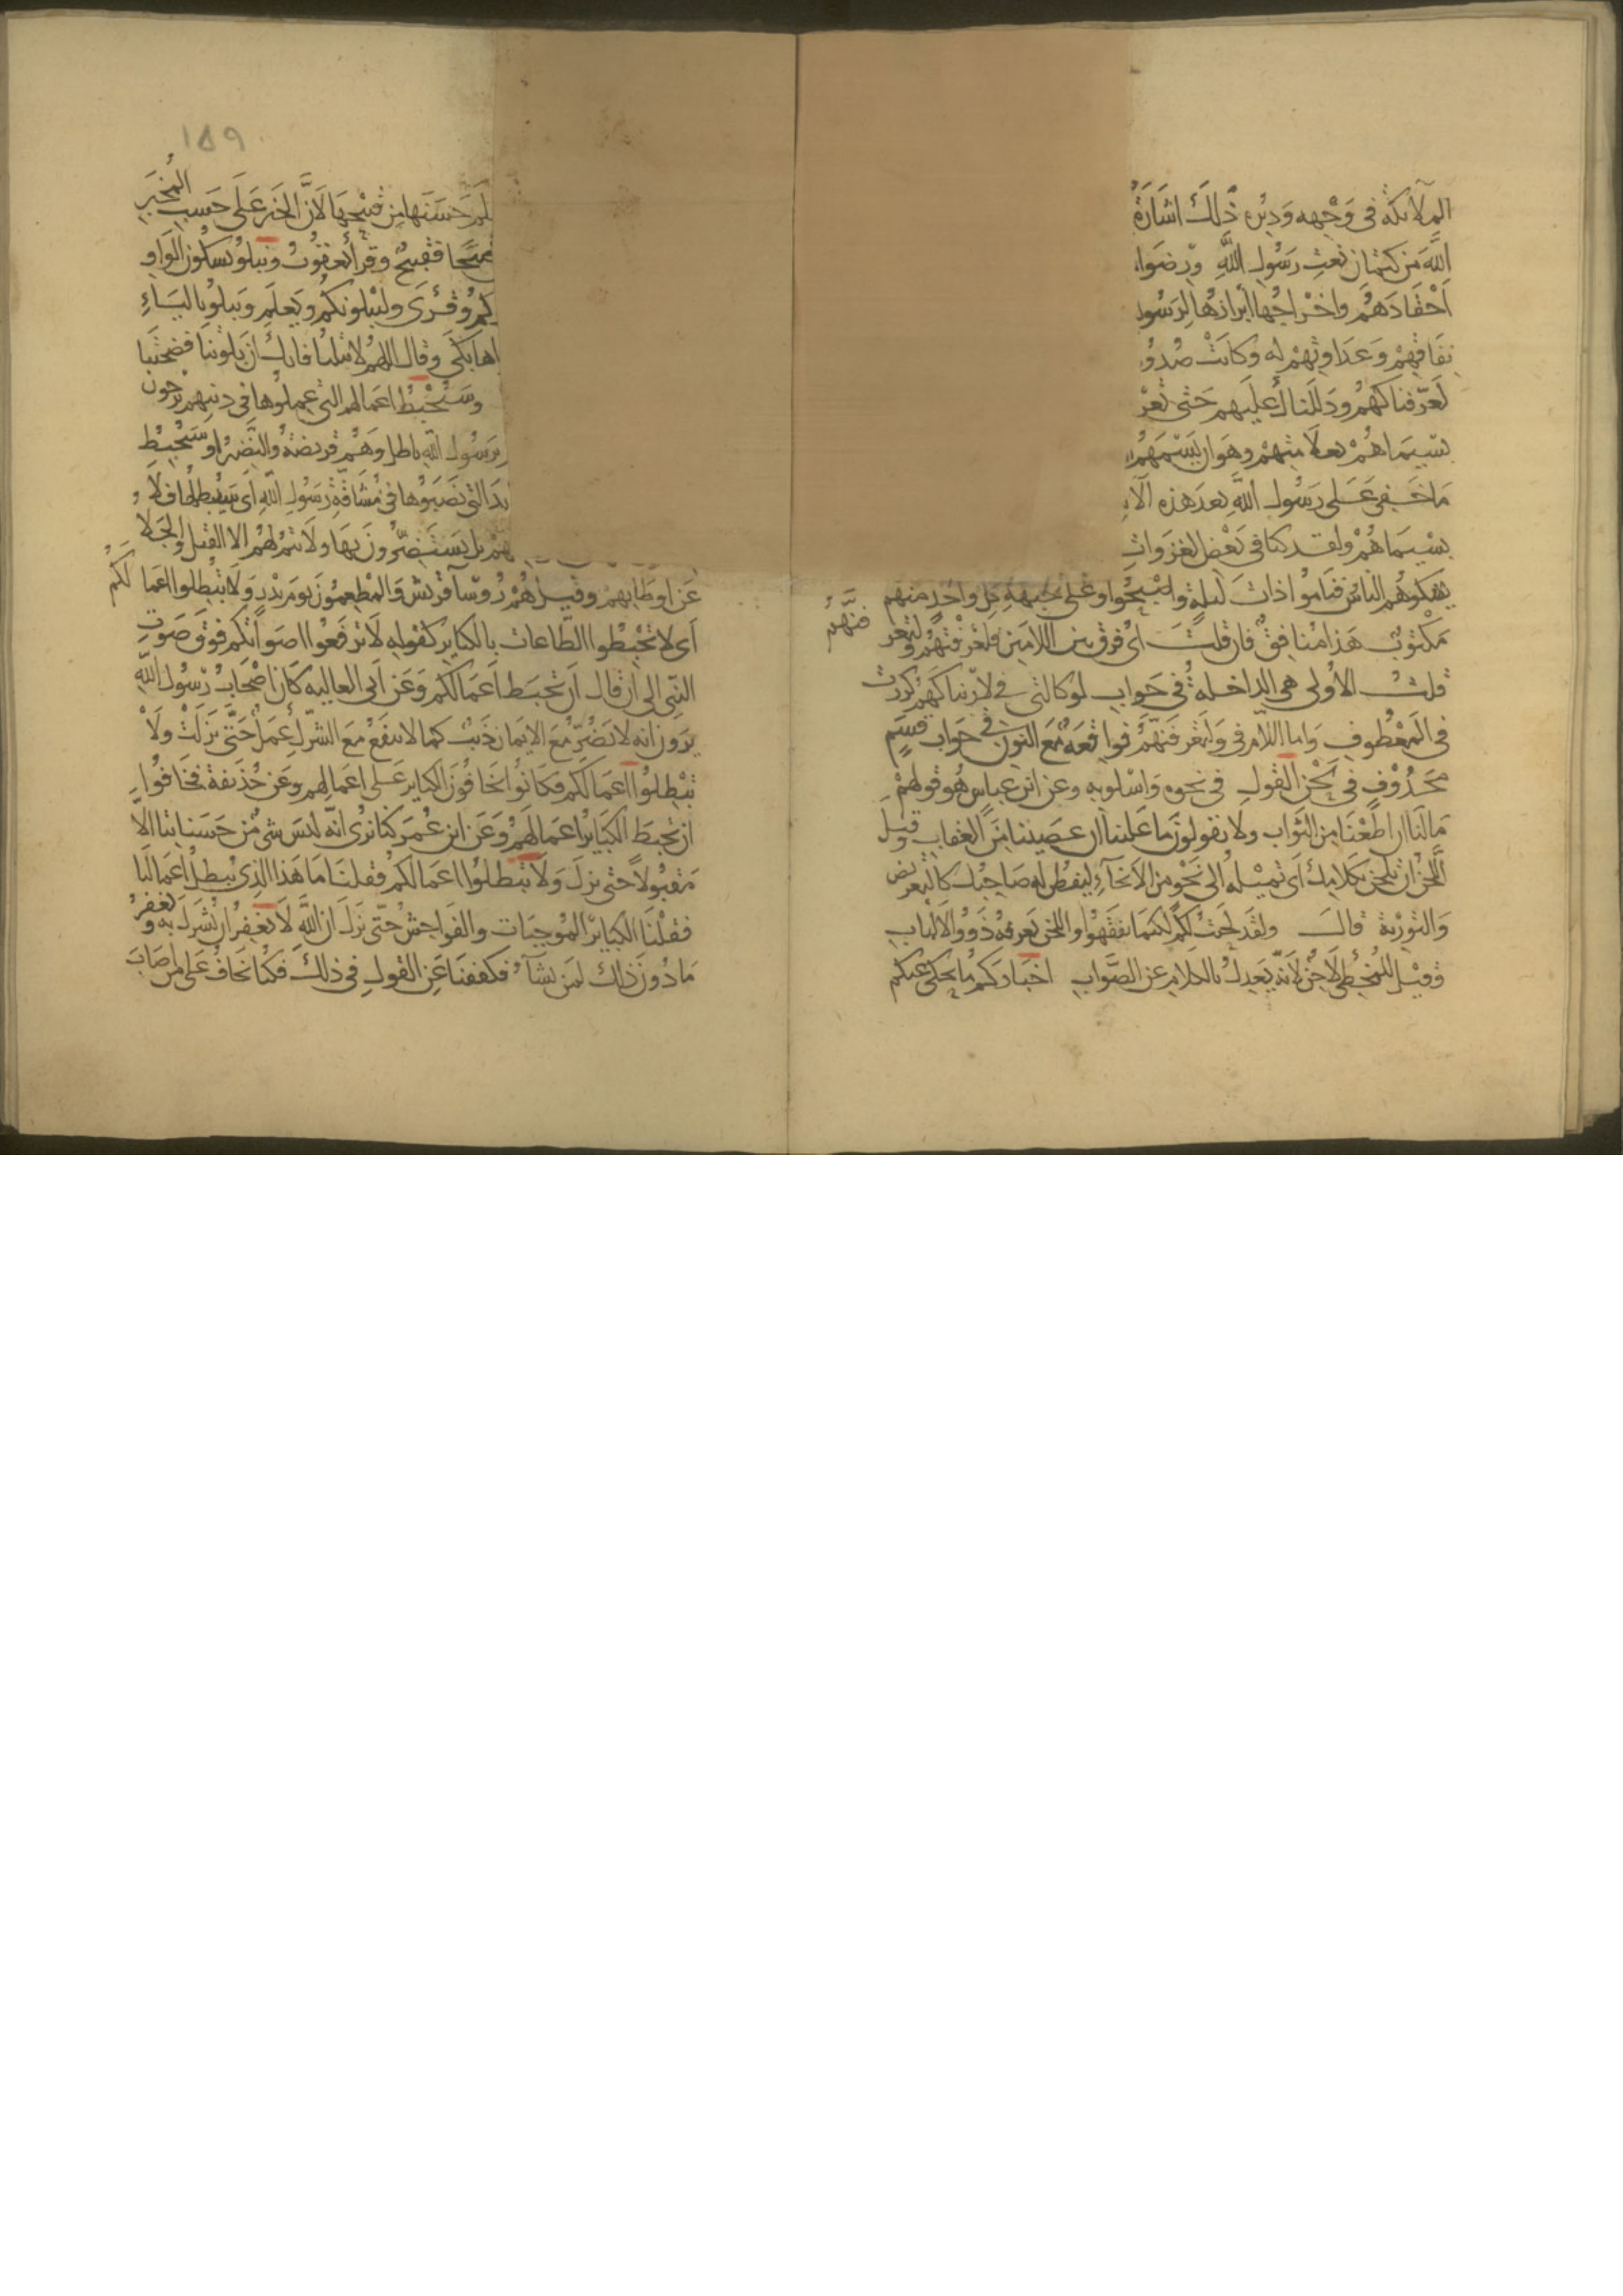 الملائكة فى وَجْهه وَدبره ذلكَ اشَارَةٌ
اللَّهَ من كتمان نعتِ رَسُولِ اللَّهِ ورضوا
اَحْقَادَهُم واخْراجُها ابرازهُا لِرَسُول
نفاقِهِمْ وَعَدَاوتهِمْ له وكانَتْ صُدُو
لعَرّفناكَهُم ودَلَلَناك عليَهم حَتى تعْر
بسِيمَاهُمْ بعلاَمتِهمْ وهوَان يَسِمَهُم
مَاخَفِى عَلى رسُول اللَّهِ بعدَ هذه الآ
بسْيمَاهُمْ ولقد كنا فى بَعْض الغَزَوات
يشكوهُم الناسُ فنامُوا ذاتَ ليلةٍ واصْبَحُوا وعَلى جَبهةِ كل واحدٍ منهم
مَكتوبٌ هَذا مُنافِقٌ فان قلتَ اىُ فرقٍ بين اللامَين فلعرَفْتَهُم ولتعر فنَّهُم
قلتُ الأولى هى الداخلةُ فى جَوابِ لو كالتى فى لاَرَيناكَهُمْ كررت
فى المَعْطُوفِ وَاما اللام فى وَلتعْرفَنّهُمْ فواقعَةٌ مَع النونِ فى جَواب قسَمٍ
مَحذُوْفٍ فى لَحْنِ القولِ فى نحوه وَاسْلوبه وعن ابن عباس هُو قولهُمْ
مَالَنا ان اطعْنَا منَ الثَوَاب ولا يَقولونَ ما عَلينا ان عصَيننا مِنَ العِقاب وقيلَ
اللحن ان تلحن بكلامِك اَى تميْله الى نَحْوٍ منَ الاَنحَآءِ ليفطن له صَاحِبُك كالتعريض
وَالتوْرية قالَ ولقدَ لحَنتُ لكُم لكَيمَا تفقَهُوا واللحن يَعرفهُ ذَوُو الاَلْبابِ
وقيْل للمُخْطِى لاَحِنٌ لانهُ يَعدِلُ بالكلامِ عن الصَّوَابِ اخبَارَكم ما يحكى عنكم
١٥٩
لم حَسَنها من قبيْحِهَا لاَنَّ الخبَر عَلَى حَسبِ المُخْبَرِ
قبيْحًا فقبيْحٌ وقرأ يَعقوُبُ ونبلوُ بسكوُن الوَاو
كم وقرىَ وليبْلونكُم ويَعلَم ويَبلوُ باليَاءِ
اها بَكَى وقال اللهمُ لا تبلُنا فانك ان بَلوتنا فضحْتَنا
وسَيُحْبطُ اعمَالهم التى عملوُها فى دينِهم يرجون
برسُول اللهِ باطل وَهُم قريظة والنَّضير اَو سَيُحْبِطُ
يدَ التى نَصَبوُها فى مُشاقّةِ رسُولِ اللَّهِ اى سَيُبْطلُها فلا
بهمْ بل يَسْتَضِرُّونَ بِهَا ولاَ تثمرُ لهُم الا القتل والجَلاَ
عَن اَوطَانِهِمْ وقيل هُمْ رُوسَآء قريْش وَالمُطعِمُونَ يَومَ بدْرٍ وَلاَ تُبْطلوا اعمالكُم
اَى لا تُحْبِطُوا الطاعات بالكبَاير كقوله لاَ تَرفَعُوا اصَواتكم فوقَ صَوتِ
النبِّى الى ان قال اَن تحبَط اَعمَالكُم وَعَن اَبى العالِيه كانَ اَصْحَابُ رسُولِ اللَّهِ
يرَونَ انه لا يَضُرّ مَعَ الايْمانِ ذَنبٌ كما لا ينفَعُ معَ الشرْك عمَلٌ حَتّى نزلَتْ ولاَ
تُبْطِلوُا اعمَالكُم فكَانوُا يخَافُونَ الكباير عَلى اعمَالِهم وعَن حُذيفة فخَافُوا
ان تحبطَ الكبَاير اعمَالهُمْ وَعَن ابن عُمَر كنا نرى انّه ليسَ شىء من حَسناتنا الاَّ
مَقبُولاً حَتّى نزلَ وَلاَ تبْطلُوا اعمَالكُم فقلنَا مَا هَذا الذى يُبطلُ اعمَالَنا
فقلْنَا الكبَايرُ المُوجبَات والفوَاحِشُ حتّى نَزلَ ان اللَّهَ لاَ يَغفِرُ ان يُشرَكَ به ويَغْفِرُ
مَا دُونَ ذلك لمن يشآءُ فكففنَا عَن القولِ فى ذلكَ فكنا نخافُ عَلى من اصَابَ